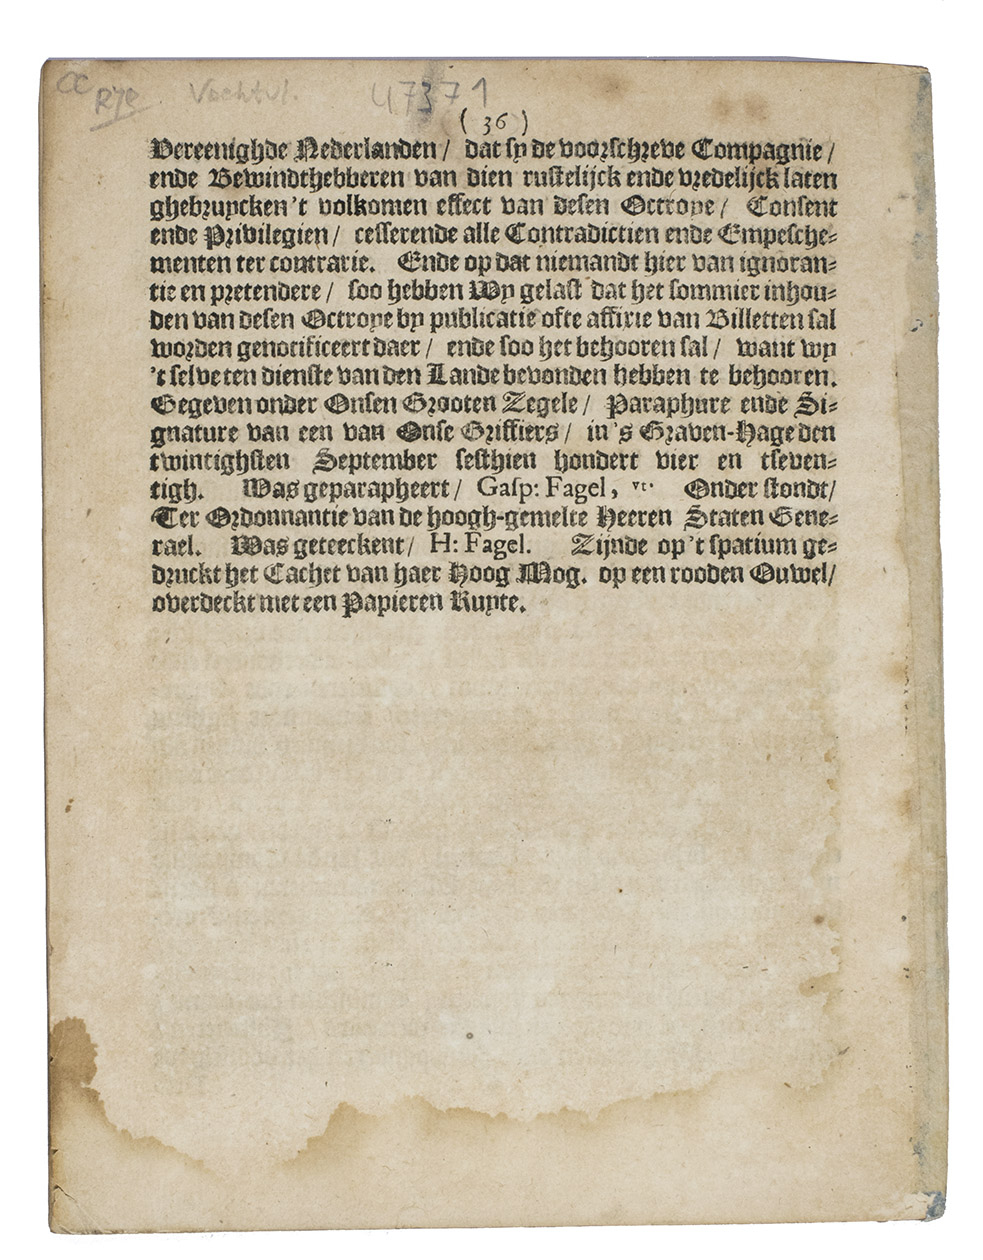 CC
Rye
47371
(36)
Vereenighde Nederlanden / dat sy de voorschreve Compagnie /
ende Bewindthebberen van dien rustelijck ende vredelijck laten
ghebruycken 't volkomen effect van desen Octroye / Consent
ende Privilegien / cesserende alle Contradictien ende Empesche⸗
menten ter contrarie. Ende op dat niemandt hier van ignoran⸗
tie en pretendere / soo hebben Wy gelast dat het sommier inhou⸗
den van desen Octroye by publicatie ofte affixie van Billetten sal
worden genotificeert daer / ende soo het behooren sal / want wy
't selve ten dienste van den Lande bevonden hebben te behooren.
Gegeven onder Onsen Grooten Zegele / Paraphure ende Si⸗
gnature van een van Onse Griffiers / in 's Graven-Hage den
twintighsten September sesthien hondert vier en tseven⸗
tigh. Was geparapheert / Gasp: Fagel, vt. Onder stondt /
Ter Ordonnantie van de hoogh-gemelte Heeren Staten Gene⸗
rael. Was geteeckent / H: Fagel. Zijnde op 't spatium ge⸗
druckt het Cachet van haer Hoog Mog. op een rooden Ouwel /
overdeckt met een Papieren Ruyte.